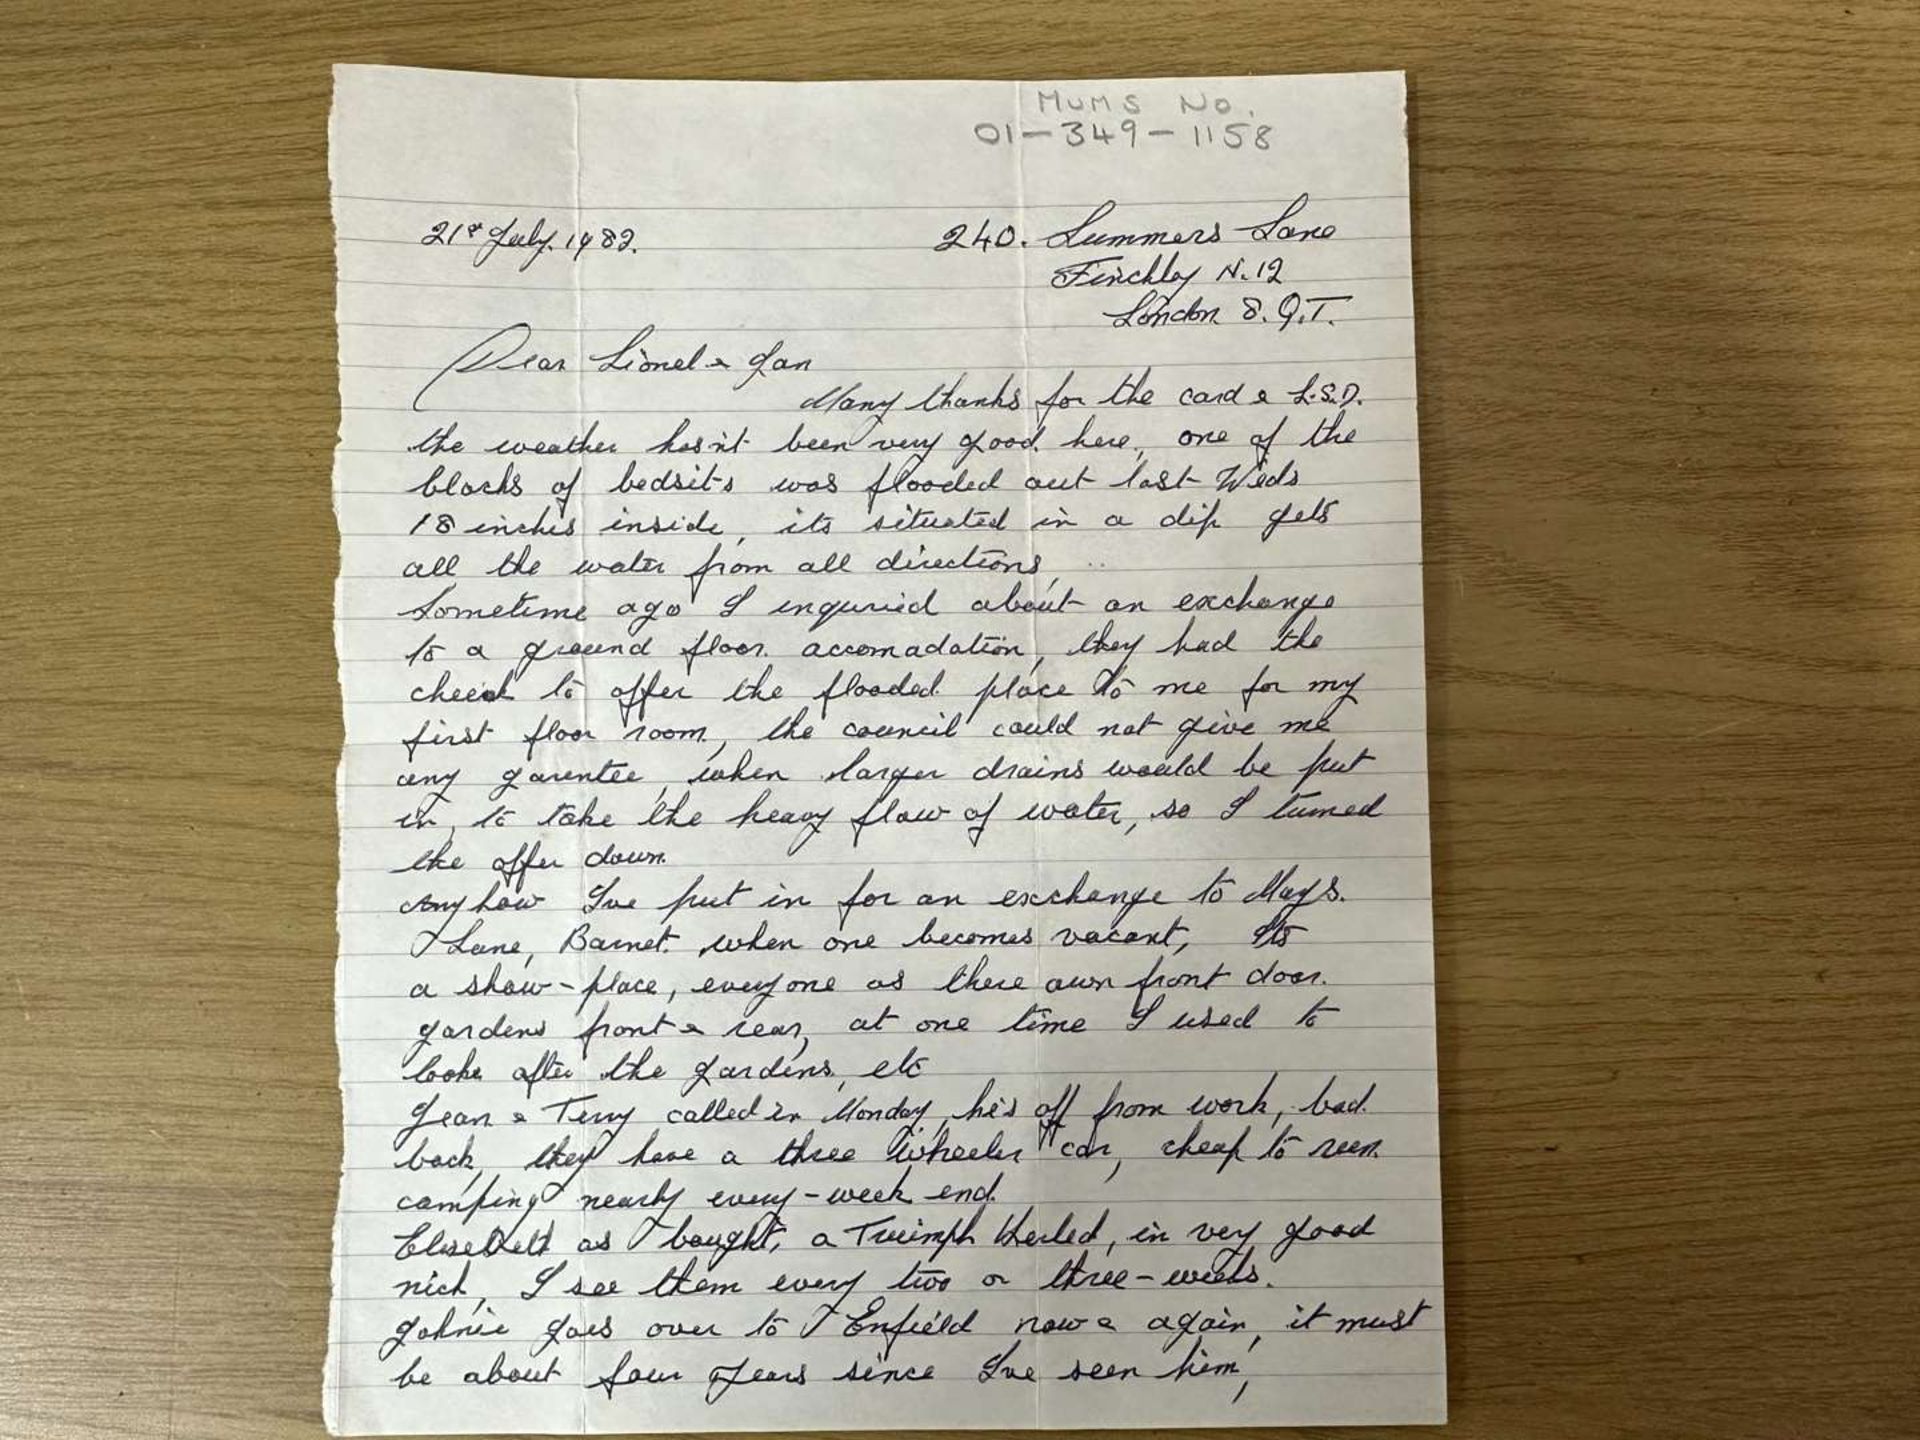 MUMS No.
01-349-1158
21st July. 1982.
240. Summers Lane
Finchley N.12
London 8.Q.T.
Dear Lionel & Jan
Many thanks for the card & L.S.D.
the weather hasn't been very good. here, one of the
blocks of bedsits was flooded out last Weds
18 inches inside, its situated in a dip gets
all the water from all directions,
Sometime ago I inquried about an exchange
to a ground floor. accomadation, they had the
cheek to offer the flooded place to me for my
first floor room, the council could not give me
any garentee, when larger drains would be put
in, to take the heavy flow of water, so I turned
the offer down.
Anyhow I've put in for an exchange to Mays.
Lane, Barnet. when one becomes vacant, Its
a show-place, everyone as there own front door.
gardens front & rear, at one time I used to
look after the gardens, etc
Jean & Terry called in Monday, he's off from work, bad.
back, they have a three wheeler car, cheap to run.
camping nearly every-week end.
as bought, a Truimph Herled, in very good
nick, I see them every two or three-weeks.
Johnie goes over to Enfield now & again, it must
be about four years since I've seen him,